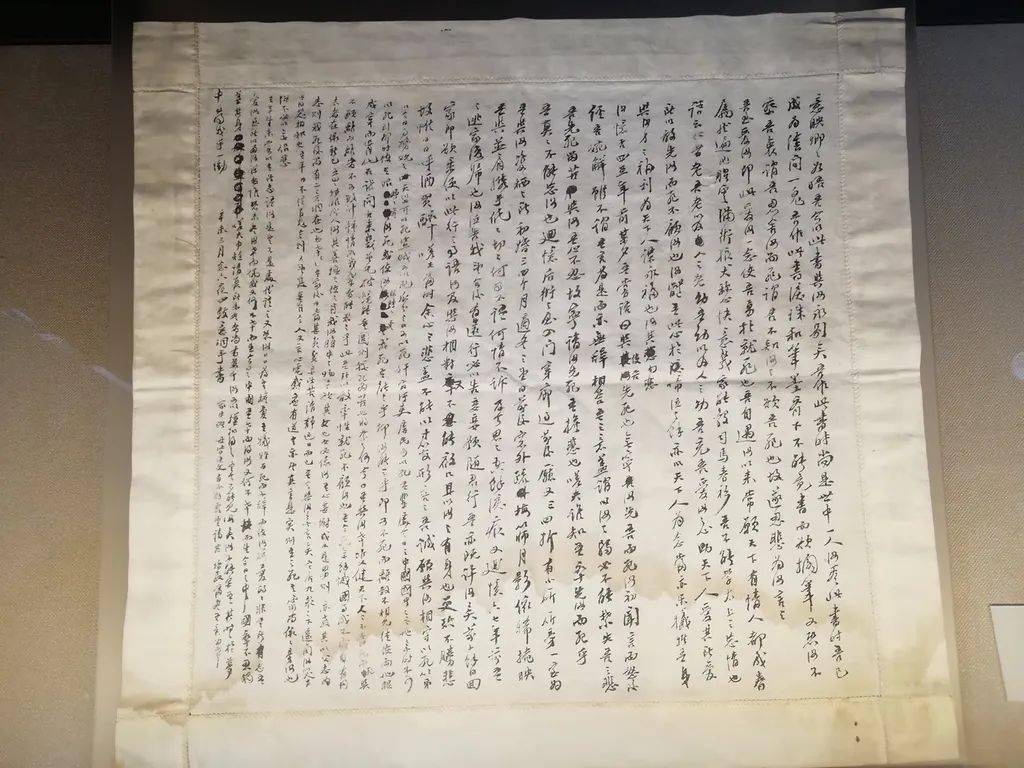 意映卿卿如晤吾今以此書與汝永別矣吾作此書時尚是世中一人汝看此書時吾已
成為陰間一鬼吾作此書淚珠和筆墨齊下不能竟書而欲擱筆又恐汝不
察吾衷謂吾忍舍汝而死謂吾不知汝之不欲吾死也故遂忍悲為汝言之
吾至愛汝即此愛汝一念使吾勇於就死也吾自遇汝以來常願天下有情人都成眷
屬然遍地腥雲滿街狼犬稱心快意幾家能彀司馬春衫吾不能學太上之忘情也
語云仁者老吾老以及人之老幼吾幼以及人之幼吾充吾愛汝之心助天下人愛其所愛
所以敢先汝而死不顧汝也汝體吾此心於啼泣之餘亦以天下人為念當亦樂犧牲吾身
與汝身之福利為天下人謀永福也汝其勿悲
汝憶否四五年前某夕吾嘗語曰與使吾先死也無寧汝先吾而死汝初聞言而怒後
經吾婉解雖不謂吾言為是而亦無辭相答吾之意蓋謂以汝之弱必不能禁失吾之悲
吾先死留苦與汝吾心不忍故寧請汝先死吾擔悲也嗟夫誰知吾卒先汝而死乎
吾真真不能忘汝也回憶後街之屋入門穿廊過前後廳又三四折有小廳廳旁一室為
吾與汝雙棲之所初婚三四個月適冬之望日前後窗外疏梅篩月影依稀掩映
吾與並肩攜手低低切切何事不語何情不訴及今思之空餘淚痕又回憶六七年前吾
之逃家復歸也汝泣告我望今後有遠行必以告妾妾願隨君行吾亦既許汝矣前十餘日回
家即欲乘便以此行之事語汝及與汝相對又不能啟口且以汝之有身也更恐不勝悲
故惟日日呼酒買醉嗟夫當時余心之悲蓋不能以寸管形容之吾誠願與汝相守以死第以
今日事勢觀之天災可以死盜賊可以死瓜分之日可以死奸官污吏虐民可以死吾輩處今日之中國國中無地無時不可
以死到那時使吾眼睜睜看汝死或使汝眼睜睜看我死吾能之乎抑汝能之乎即可不死而離散不相見徒使兩地眼
成穿而骨化石試問古來幾曾見破鏡能重圓則較死為苦也將奈之何今日吾與汝幸雙健天下人人不當死而死與
不願離而離者不可數計鍾情如我輩者能忍之乎此吾所以敢率性就死不顧汝也吾今死無餘憾國事成不成自有同
志者在依新已五歲轉眼成人汝其善撫之使之肖我汝腹中之物吾疑其女也女必像汝吾心甚慰或又是男則亦教其以父志為
志則我死後尚有二意洞在也甚幸甚幸吾家後日當甚貧貧無所苦清靜過日而已吾今與汝無言矣吾居九泉之下遙聞汝哭聲
當哭相和也吾平日不信有鬼今則又望其真有今人又言心電感應有道吾亦望其言是實則吾之死吾靈尚依依旁汝也
汝不必以無侶悲
吾平生未嘗以吾所志語汝是吾不是處然語之又恐汝日日為吾擔憂吾犧牲百死而不辭而使汝擔憂的的非吾所忍吾
愛汝至所以為汝謀者惟恐未盡汝幸而偶我又何不幸而生今日之中國吾幸而得汝又何不幸而生今日之中國卒不忍獨
善其身嗟夫巾短情長所未盡者尚有萬千汝可以模擬得之吾今不能見汝矣汝不能舍吾其時時於夢
中尋我乎一慟 辛未三月念六夜四鼓意洞手書
家中諸母皆通文有不解處望請其指教當盡吾意為幸